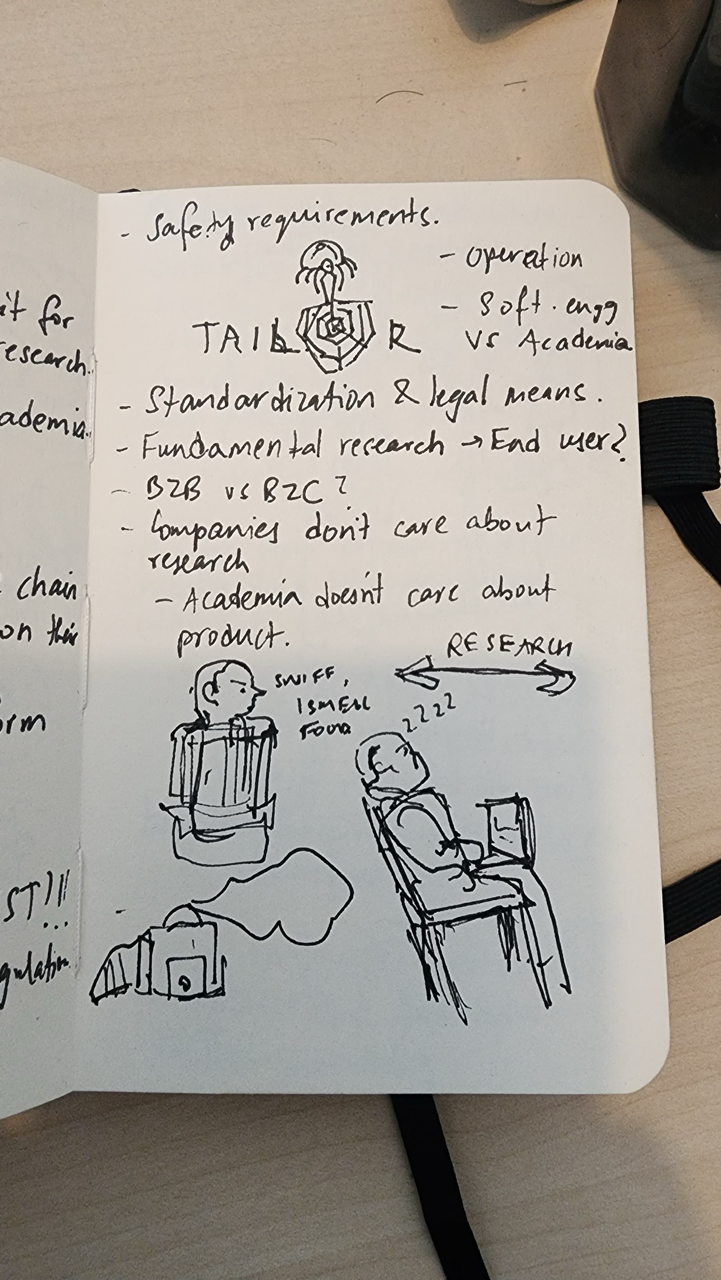 it for
research.
ademia.
chain
on their
orm
ST!!!
gulation
- Safety requirements.
- Operation
- Soft. engg
vs Academia
TAIL R
- Standardization & legal means.
- Fundamental research → End user?
- B2B vs B2C?
- Companies don't care about
research
- Academia doesn't care about
product.
RESEARCH
SNIFF,
I SMELL
FOOD
zzzz